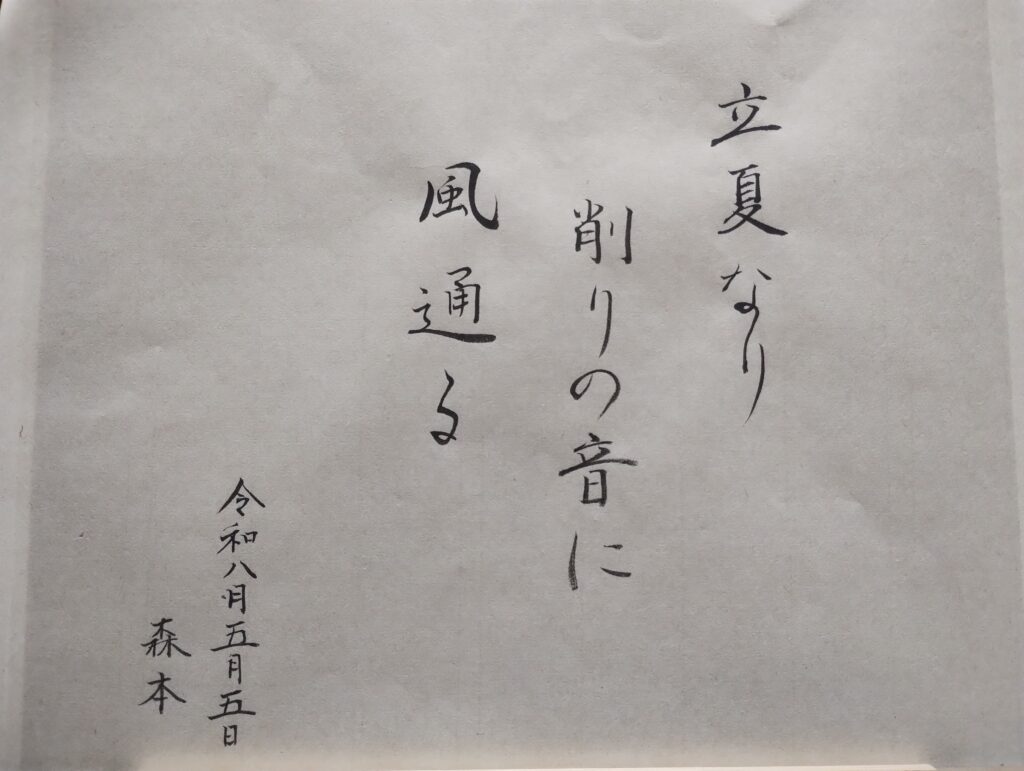 立夏なり
削りの音に
風通る
令和八月五月五日
森本